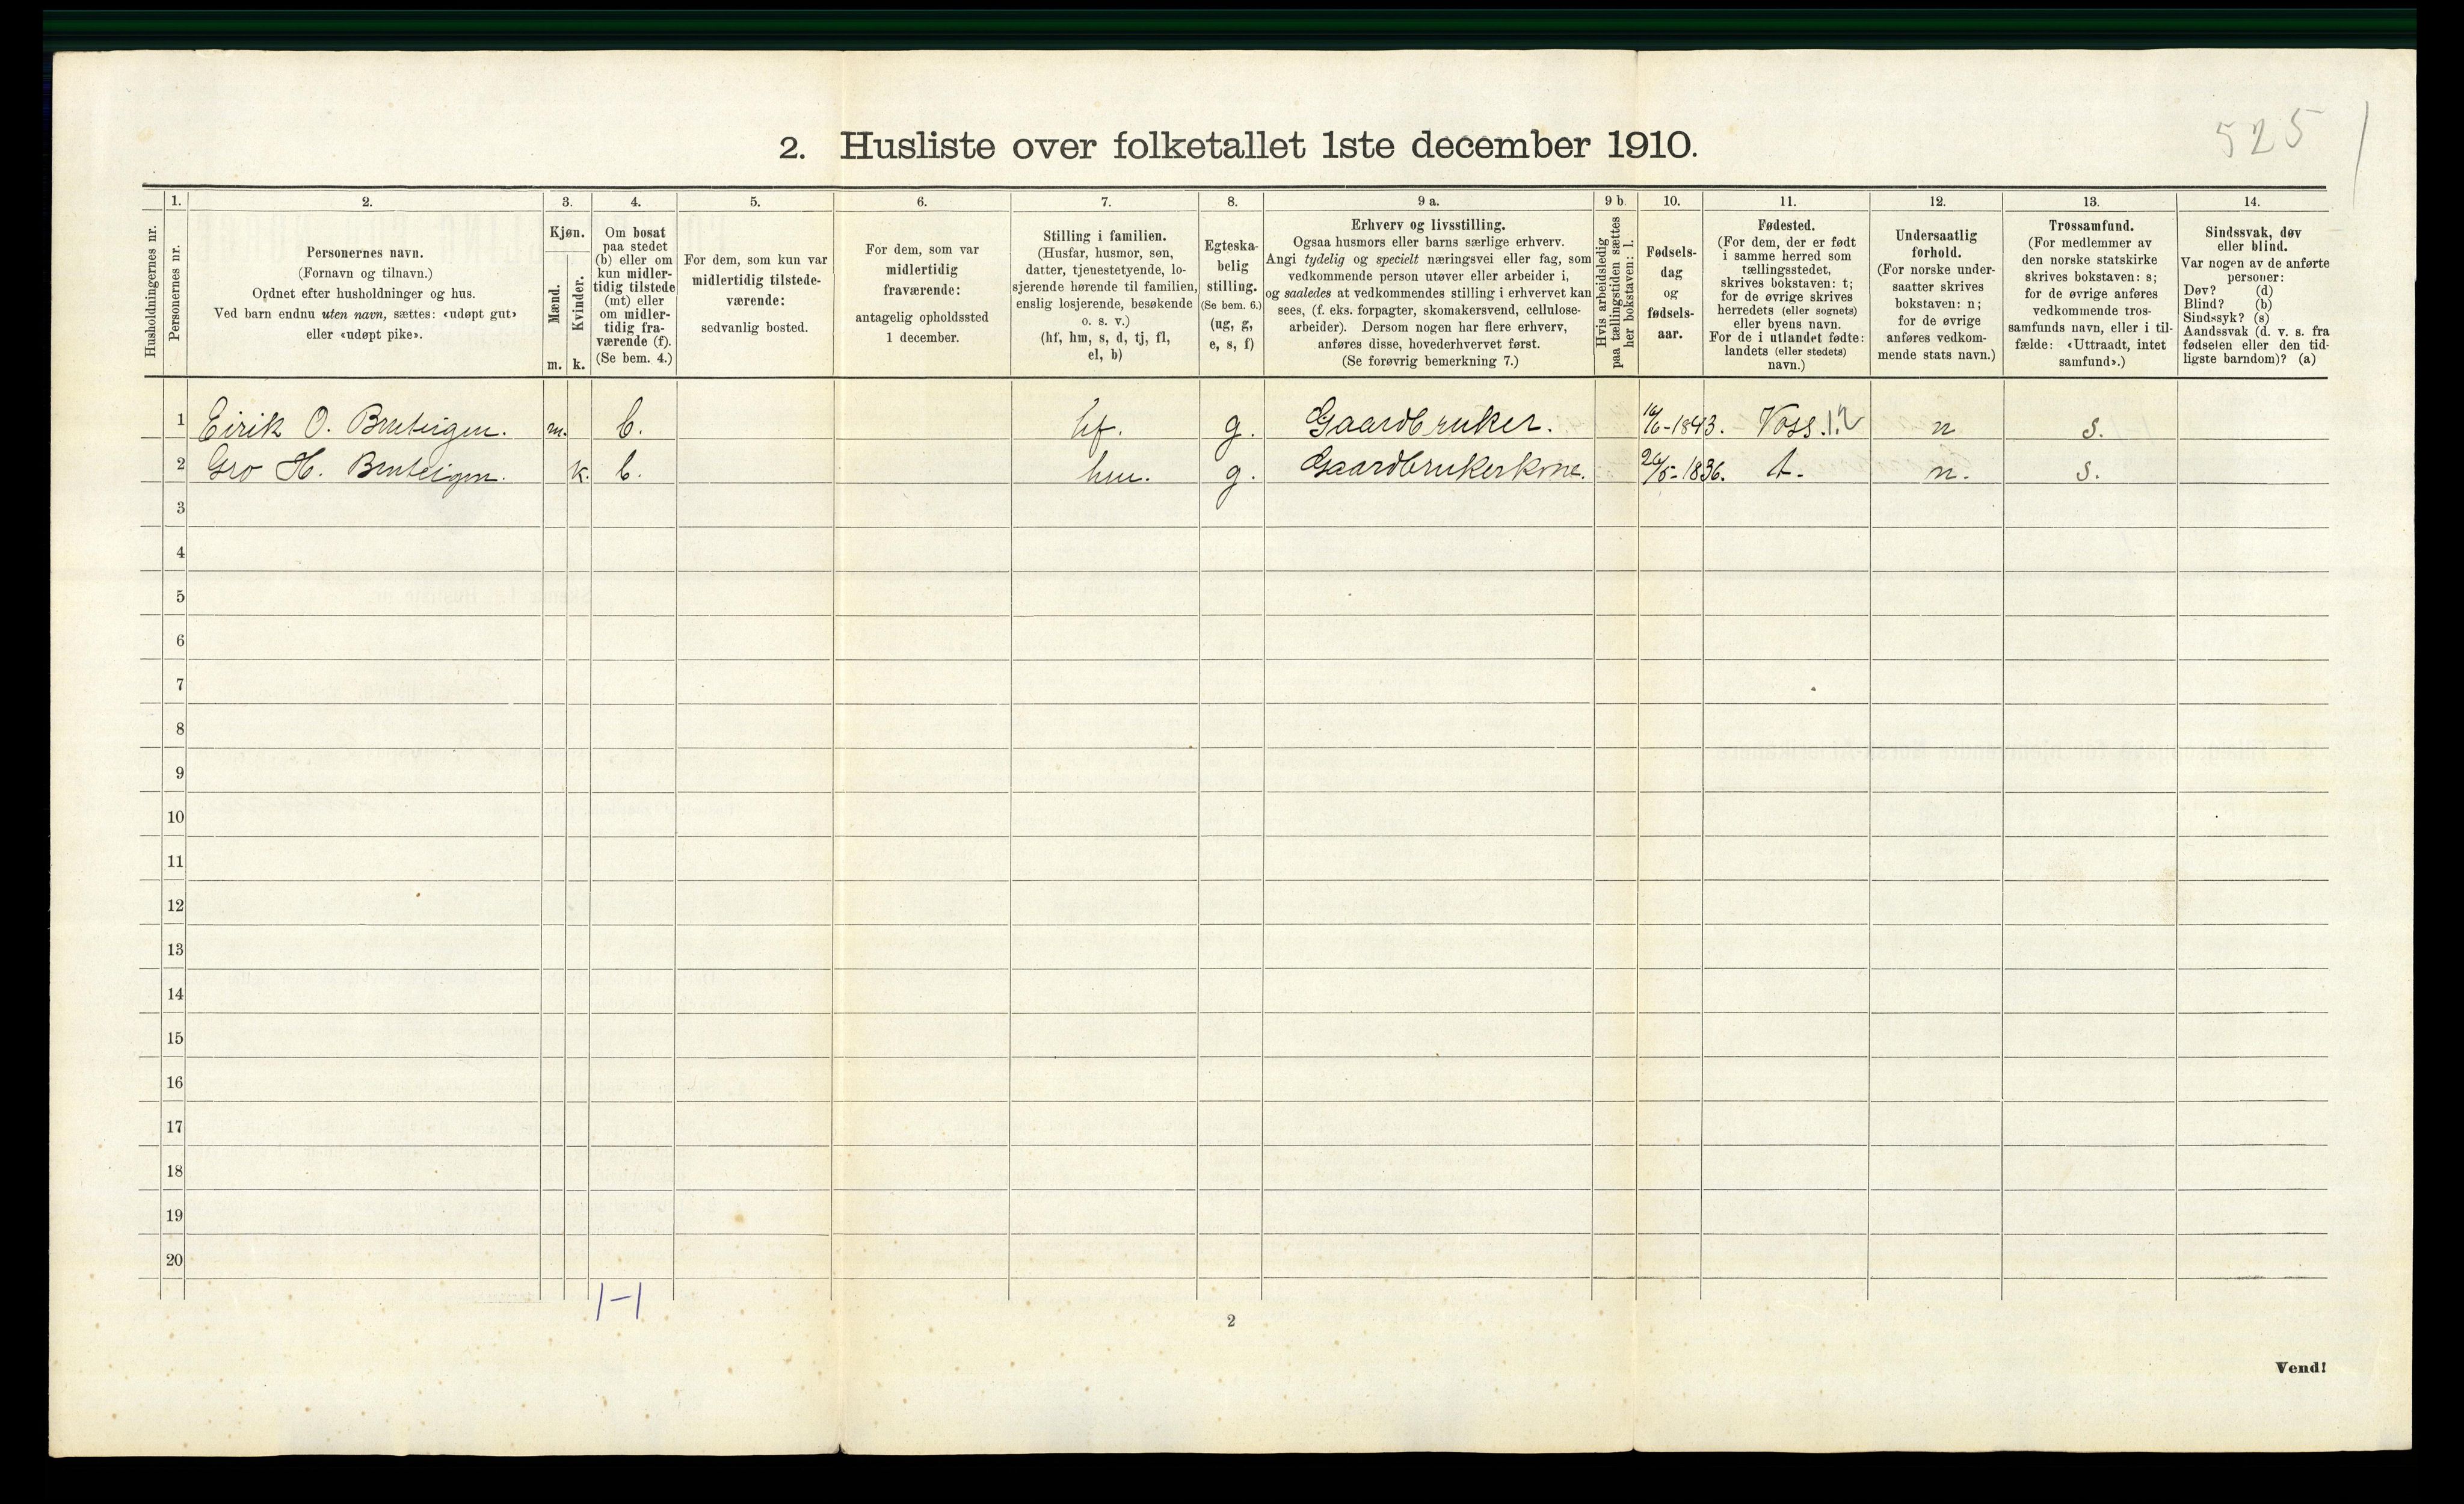 525
2. Husliste over folketallet 1ste december 1910.
Husholdningernes nr.
1.
Personernes nr.
2.
Personernes navn.
(Fornavn og tilnavn.)
Ordnet efter husholdninger og hus.
Ved barn endnu uten navn, sættes: «udøpt gut»
eller «udøpt pike».
3.
Kjøn.
Mænd.
Kvinder.
m. k.
4.
Om bosat
paa stedet
(b) eller om
kun midler-
tidig tilstede
(mt) eller
om midler-
tidig fra-
værende (f).
(Se bem. 4.)
5.
For dem, som kun var
midlertidig tilstede-
værende:
sedvanlig bosted.
6.
For dem, som var
midlertidig
fraværende:
antagelig opholdssted
1 december.
7.
Stilling i familien.
(Husfar, husmor, søn,
datter, tjenestetyende, lo-
sjerende hørende til familien,
enslig losjerende, besøkende
o. s. v.)
(hf, hm, s, d, tj, fl,
el, b)
8.
Egteska-
belig
stilling.
(Se bem. 6.)
(ug, g,
e, s, f)
9 a.
Erhverv og livsstilling.
Ogsaa husmors eller barns særlige erhverv.
Angi tydelig og specielt næringsvei eller fag, som
vedkommende person utøver eller arbeider i,
og saaledes at vedkommendes stilling i erhvervet kan
sees, (f. eks. forpagter, skomakersvend, cellulose-
arbeider). Dersom nogen har flere erhverv,
anføres disse, hovederhvervet først.
(Se forøvrig bemerkning 7.)
9 b.
Hvis arbeidsledig
paa tællingstiden sættes
her bokstaven: l.
10.
Fødsels-
dag
og
fødsels-
aar.
11.
Fødested.
(For dem, der er født
i samme herred som
tællingsstedet,
skrives bokstaven: t;
for de øvrige skrives
herredets (eller sognets)
eller byens navn.
For de i utlandet fødte:
landets (eller stedets)
navn.)
12.
Undersaatlig
forhold.
(For norske under-
saatter skrives
bokstaven: n;
for de øvrige
anføres vedkom-
mende stats navn.)
13.
Trossamfund.
(For medlemmer av
den norske statskirke
skrives bokstaven: s;
for de øvrige anføres
vedkommende tros-
samfunds navn, eller i til-
fælde: «Uttraadt, intet
samfund».)
14.
Sindssvak, døv
eller blind.
Var nogen av de anførte
personer:
Døv? (d)
Blind? (b)
Sindssyk? (s)
Aandssvak (d. v. s. fra
fødselen eller den tid-
ligste barndom)? (a)
1 Eirik O. Bruteigen. m. b. hf. g. Gaardbruker. 16/6-1843. Voss. 12 n s.
2 Gro H. Bruteigen. k. b. hm. g. Gaardbrukerkone. 20/5-1836. t. n. s.
3
4
5
6
7
8
9
10
11
12
13
14
15
16
17
18
19
20
1-1
2
Vend!